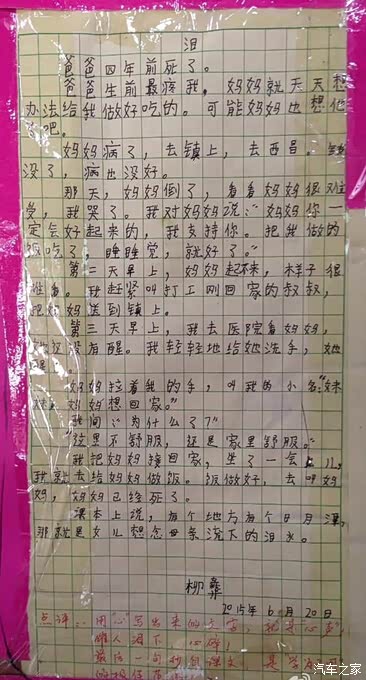 泪
爸爸四年前死了。
爸爸生前最疼我，妈妈就天天想
办法给我做好吃的。可能妈妈也想他
了吧。
妈妈病了，去镇上，去西昌。钱
没了，病也没好。
那天，妈妈倒了，看看妈妈很难
受，我哭了。我对妈妈说：“妈妈你一
定会好起来的，我支持你。把我做的
饭吃了，睡睡觉，就好了。”
第二天早上，妈妈起不来，样子很
难看。我赶紧叫打工刚回家的叔叔，
把妈妈送到镇上。
第三天早上，我去医院看妈妈，
她还没有醒。我轻轻地给她洗手，她
醒
妈妈拉着我的手，叫我的小名：“妹
妹，妈妈想回家。”
我问：“为什么了？”
“这里不舒服，还是家里舒服。”
我把妈妈接回家，坐了一会儿，
我就去给妈妈做饭。饭做好，去叫妈
妈，妈妈已经死了。
课本上说，有个地方有个日月潭，
那就是女儿想念母亲流下的泪水。
柳彝
2015年6月20日
点评：用“心”写出来的文
催人泪下
最后一句
汽车之家